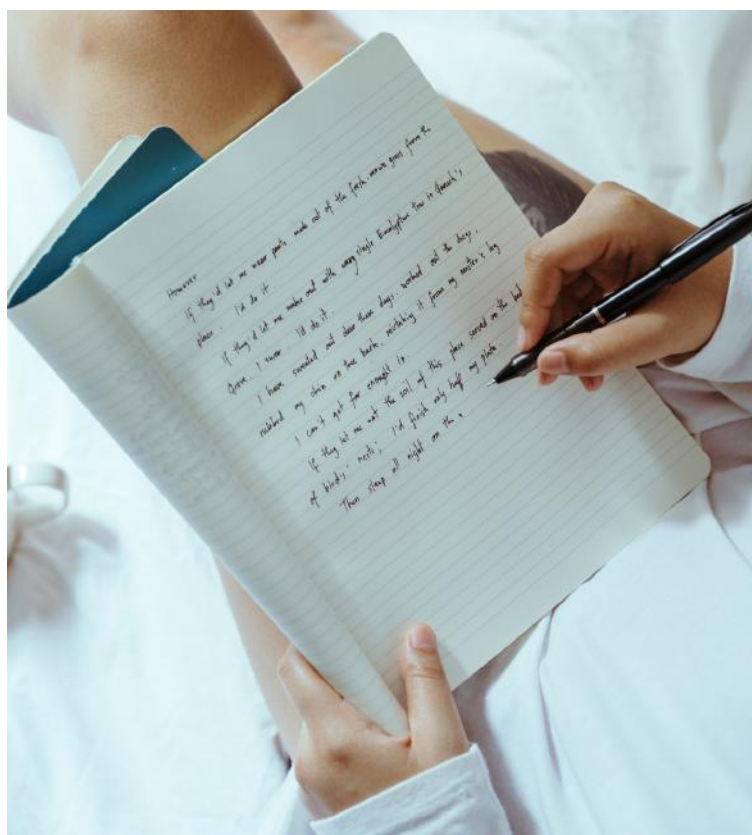 However
If they'd let me wear pants made out of the fresh-mown grass form the
place. I'd do it.
If they'd let me make out with every single Eucalyptus Tree in
Grove, I swear. I'd do it.
I have sweated out dew these days, worked out the dregs,
rubbed my chin on tree bark, mistaking it from my master's leg
I can't get far enought in.
If they let me eat the soil of this place served on the bed
of birds' nests; I'd finish only half my plate
Then sleep all night on the